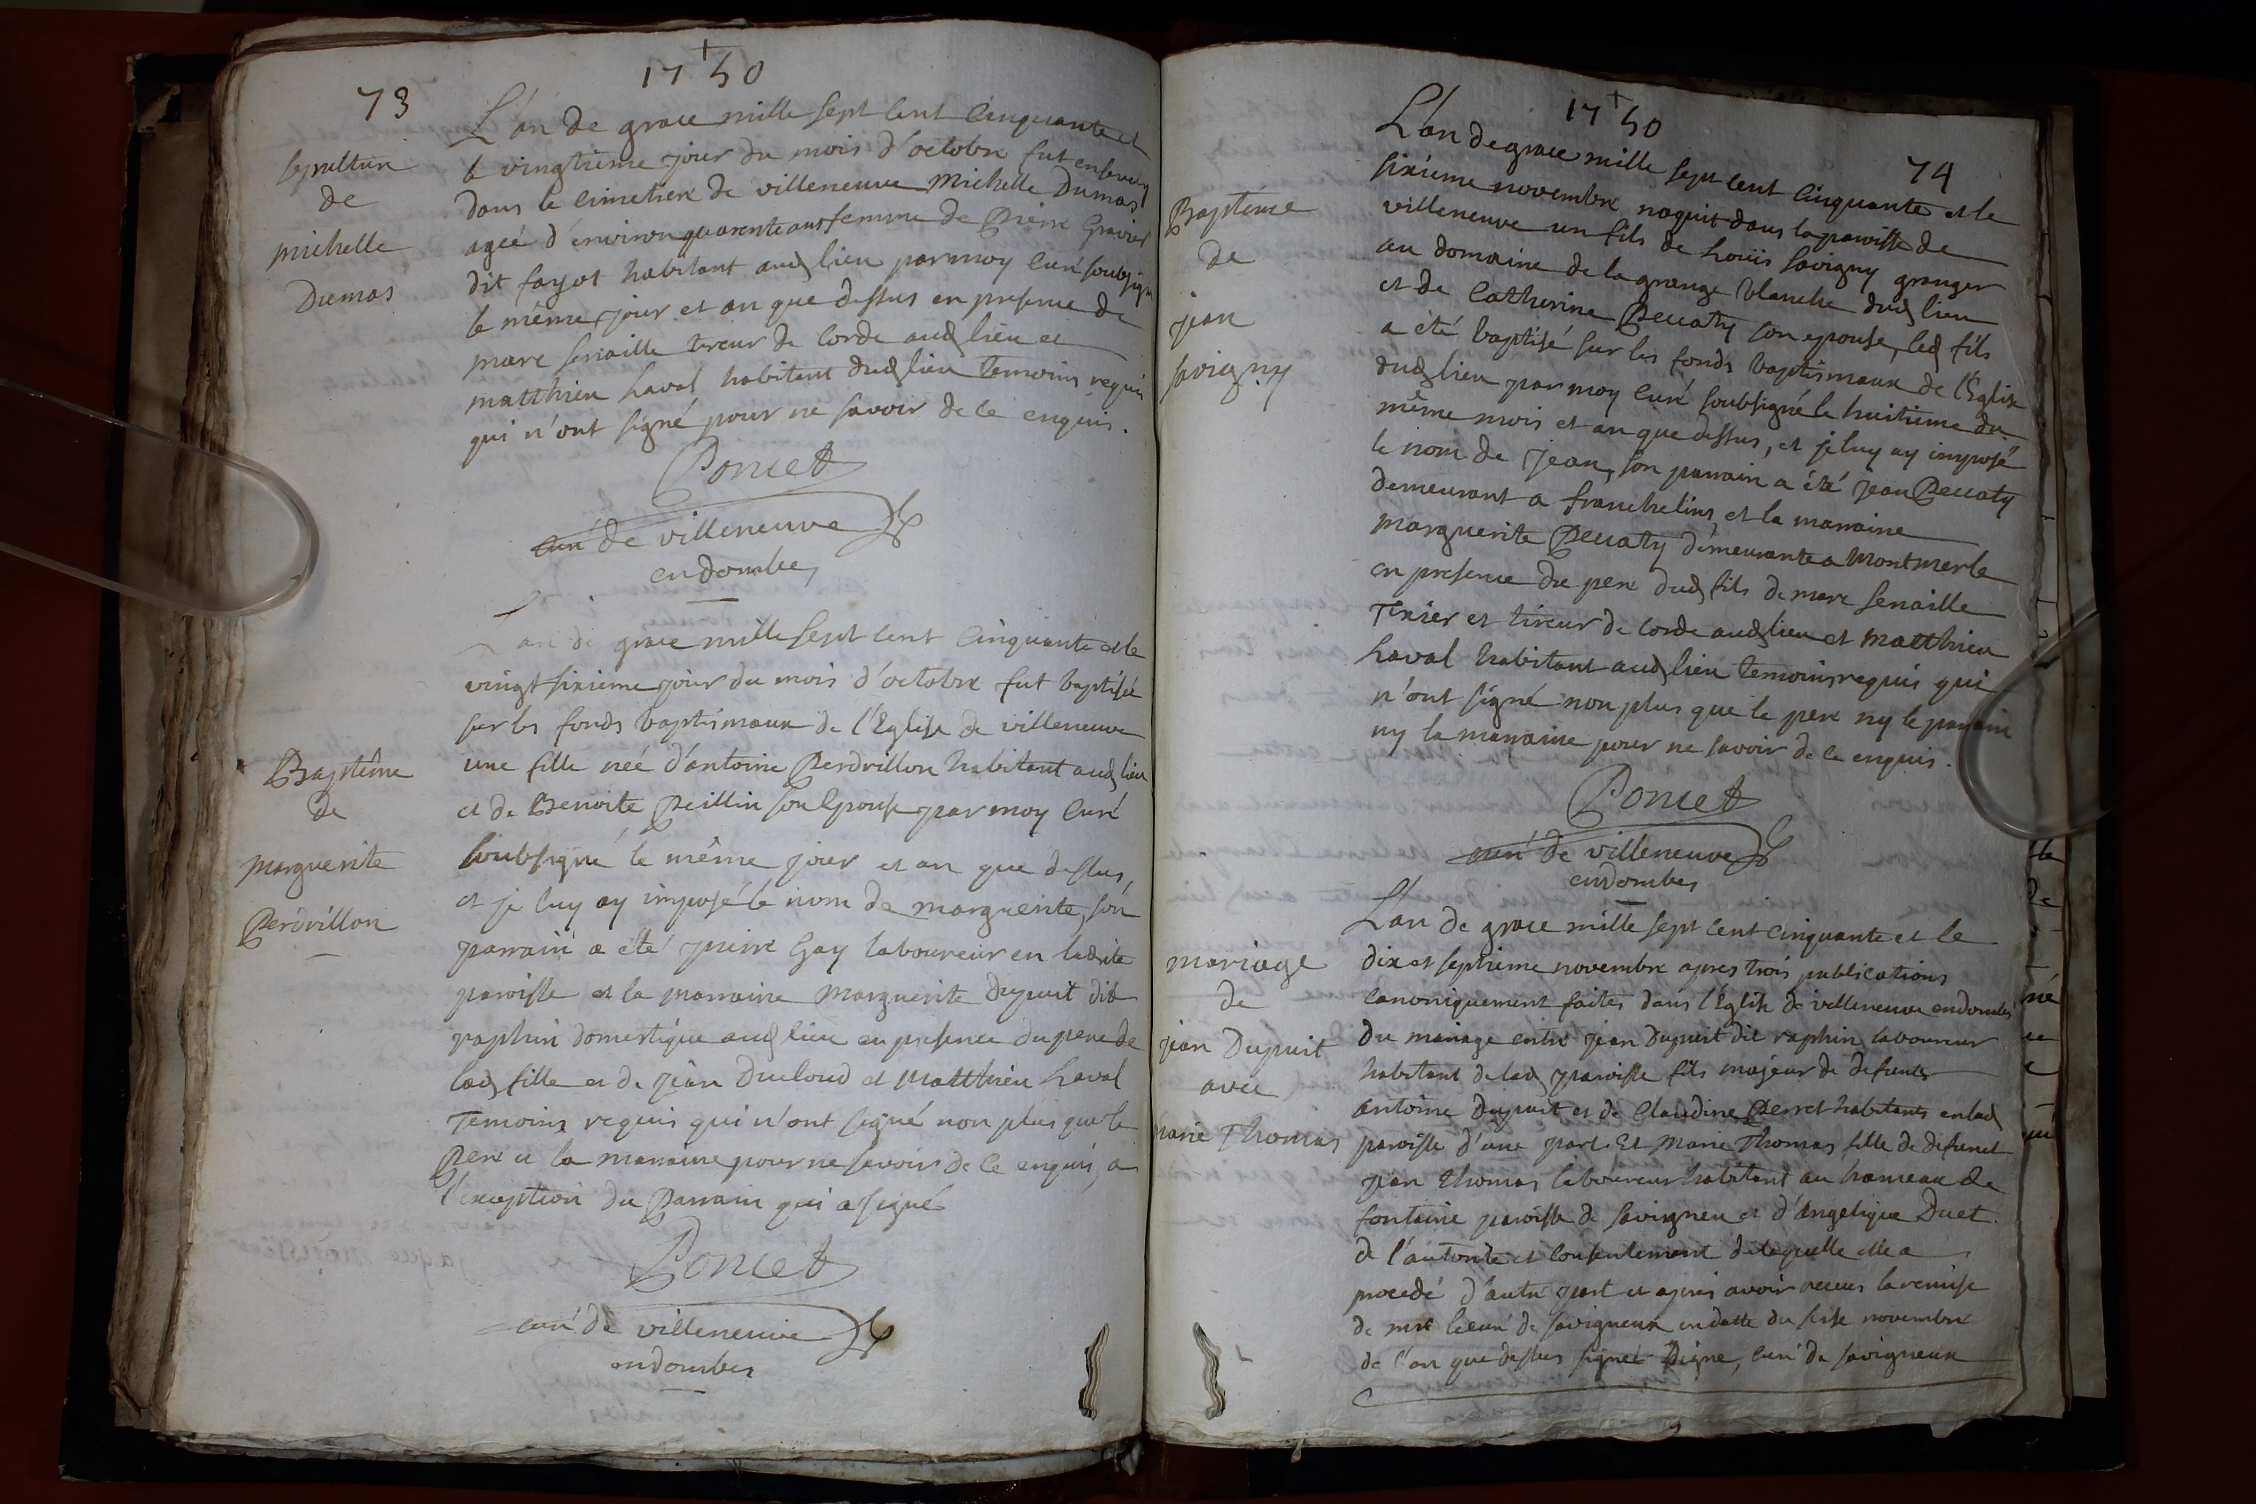 1750
73
L'an de grace mille sept cent cinquante et
le vingtieme jour du mois d'octobre fut enseveli
dans le cimetiere de villeneuve Michelle Dumas
ageé d'environ quarente ans femme de Pierre Gravier
dit fayot habitant aud lieu par moy curé soubsigné
le même jour et an que dessus en presence de
marc senaille tireur de corde aud lieu et
matthieu Laval habitant dud lieu temoins requis
qui n'ont signé pour ne savoir de ce enquis.
sepulture
de
michelle
Dumas
Poncet
curé de villeneuve
en dombes
L'an de grace mille sept cent cinquante et le
vingt sixieme jour du mois d'octobre fut baptisée
sur les fonds baptismaux de l'Eglise de villeneuve
une fille neé d'antoine Perdrillon habitant aud lieu
et de Benoite Peillin son Epouse par moy curé
soubsigné le même jour et an que dessus,
et je luy ay imposé le nom de marguerite, son
parrain a été pierre Gay laboureur en ladite
paroisse et la marraine Marguerite Dupuit dit
raphin domestique aud lieu en presence du pere de
lad fille et de jean Ducloud et Matthieu Laval
Temoins requis qui n'ont signé non plus que le
Pere et la marraine pour ne savoir de ce enquis, a
l'exception du Parrain qui a signé
Baptême
de
marguerite
Perdrillon
Poncet
curé de villeneuve
en dombes
1750
74
L'an de grace mille sept cent cinquante et le
sixiéme novembre naquit dans la paroisse de
villeneuve un fils de Loüis savigny granger
au domaine de la grange blanche dud lieu
et de Catherine Peccaty son epouse, led fils
a été baptisé sur les fonds baptismaux de l'Eglise
dud lieu par moy curé soubsigné le huitieme du
même mois et an que dessus, et je luy ay imposé
le nom de jean, son parrain a été jean Peccaty
demeurant a franchelins et la marraine
marguerite Peccaty demeurante a Montmerle
en presence du pere dud fils de marc senaille
Tixier et tireur de corde aud lieu et Matthieu
Laval habitant aud lieu temoins requis qui
n'ont signé non plus que le pere ny le parrain
ny la marraine pour ne savoir de ce enquis.
Baptême
de
jean
savigny
Poncet
curé de villeneuve
en dombes
L'an de grace mille sept cent cinquante et le
dix et septieme novembre apres trois publications
canoniquement faites dans l'Eglise de villeneuve en dombes
du mariage entre jean Dupuit dit raphin laboureur
habitant de lad paroisse fils majeur de defunts
antoine dupuit et de Claudine Perret habitants en lad
paroisse d'une part. Et Marie Thomas fille de defunct
jean Thomas laboureur habitant au hameau de
fontaine paroisse de savigneu et d'angelique Duet
de l'autorité et consentement de laquelle elle a
procedé d'autre part et apres avoir receus la remise
de mre le curé de savigneux en datte du seise novembre
de l'an que dessus signeé Digne, curé de savigneux
mariage
de
jean Dupuit
avec
marie Thomas